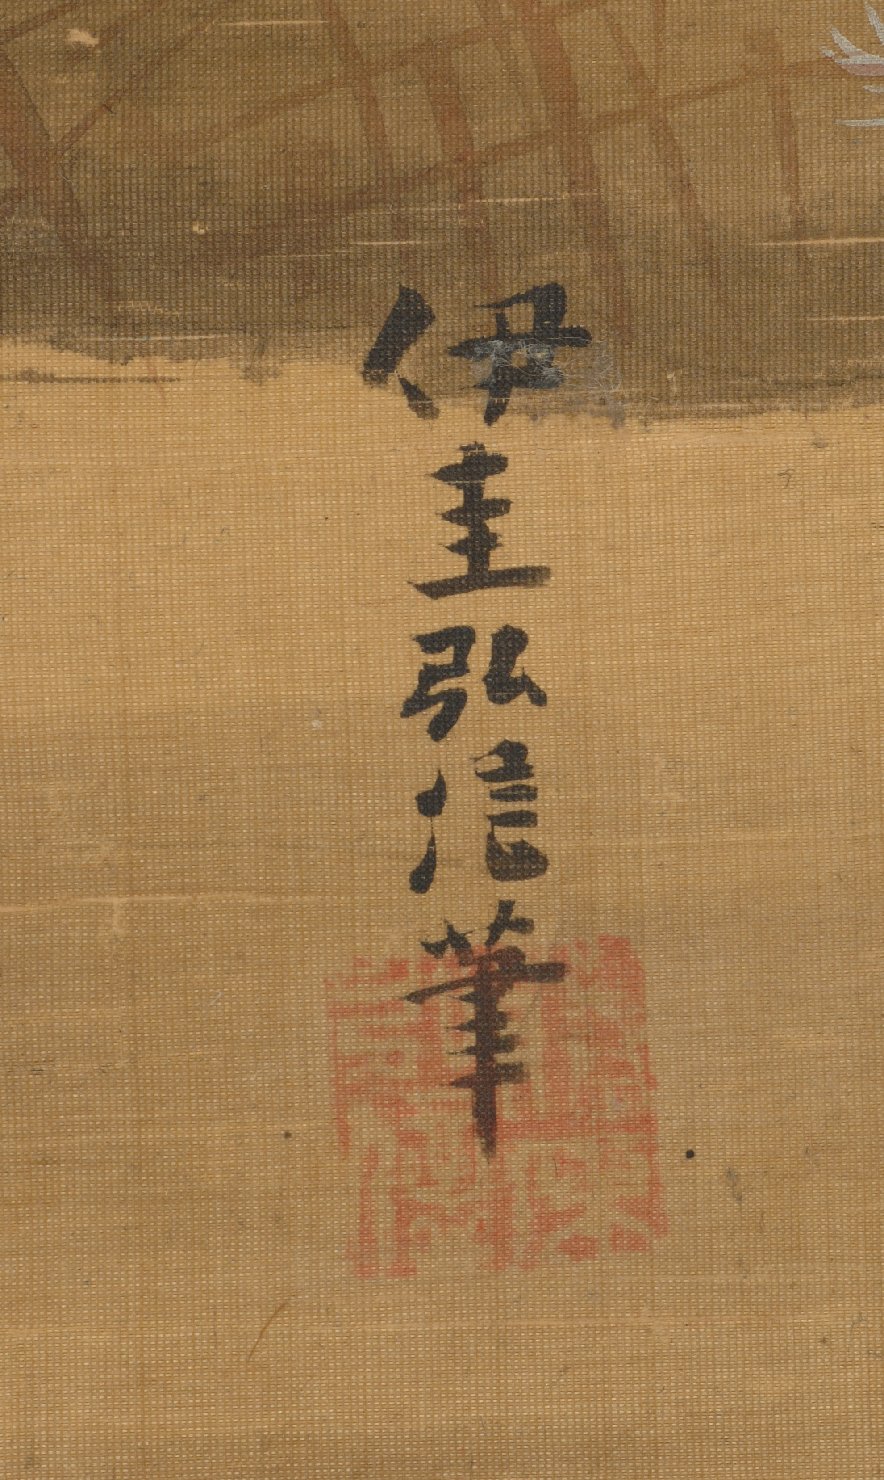 伊圭弘信筆